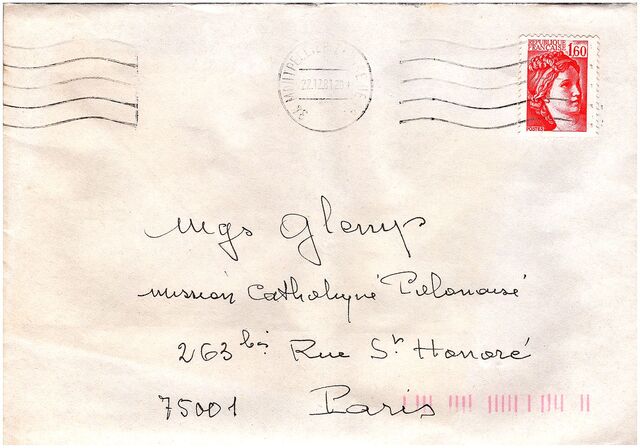 REPUBLIQUE
FRANCAISE
1,60
POSTES
34 MONTPELLIER
22.12.81
Mgs Glemp
mission Catholique Polonaise
263 bis Rue St Honoré
75001 Paris